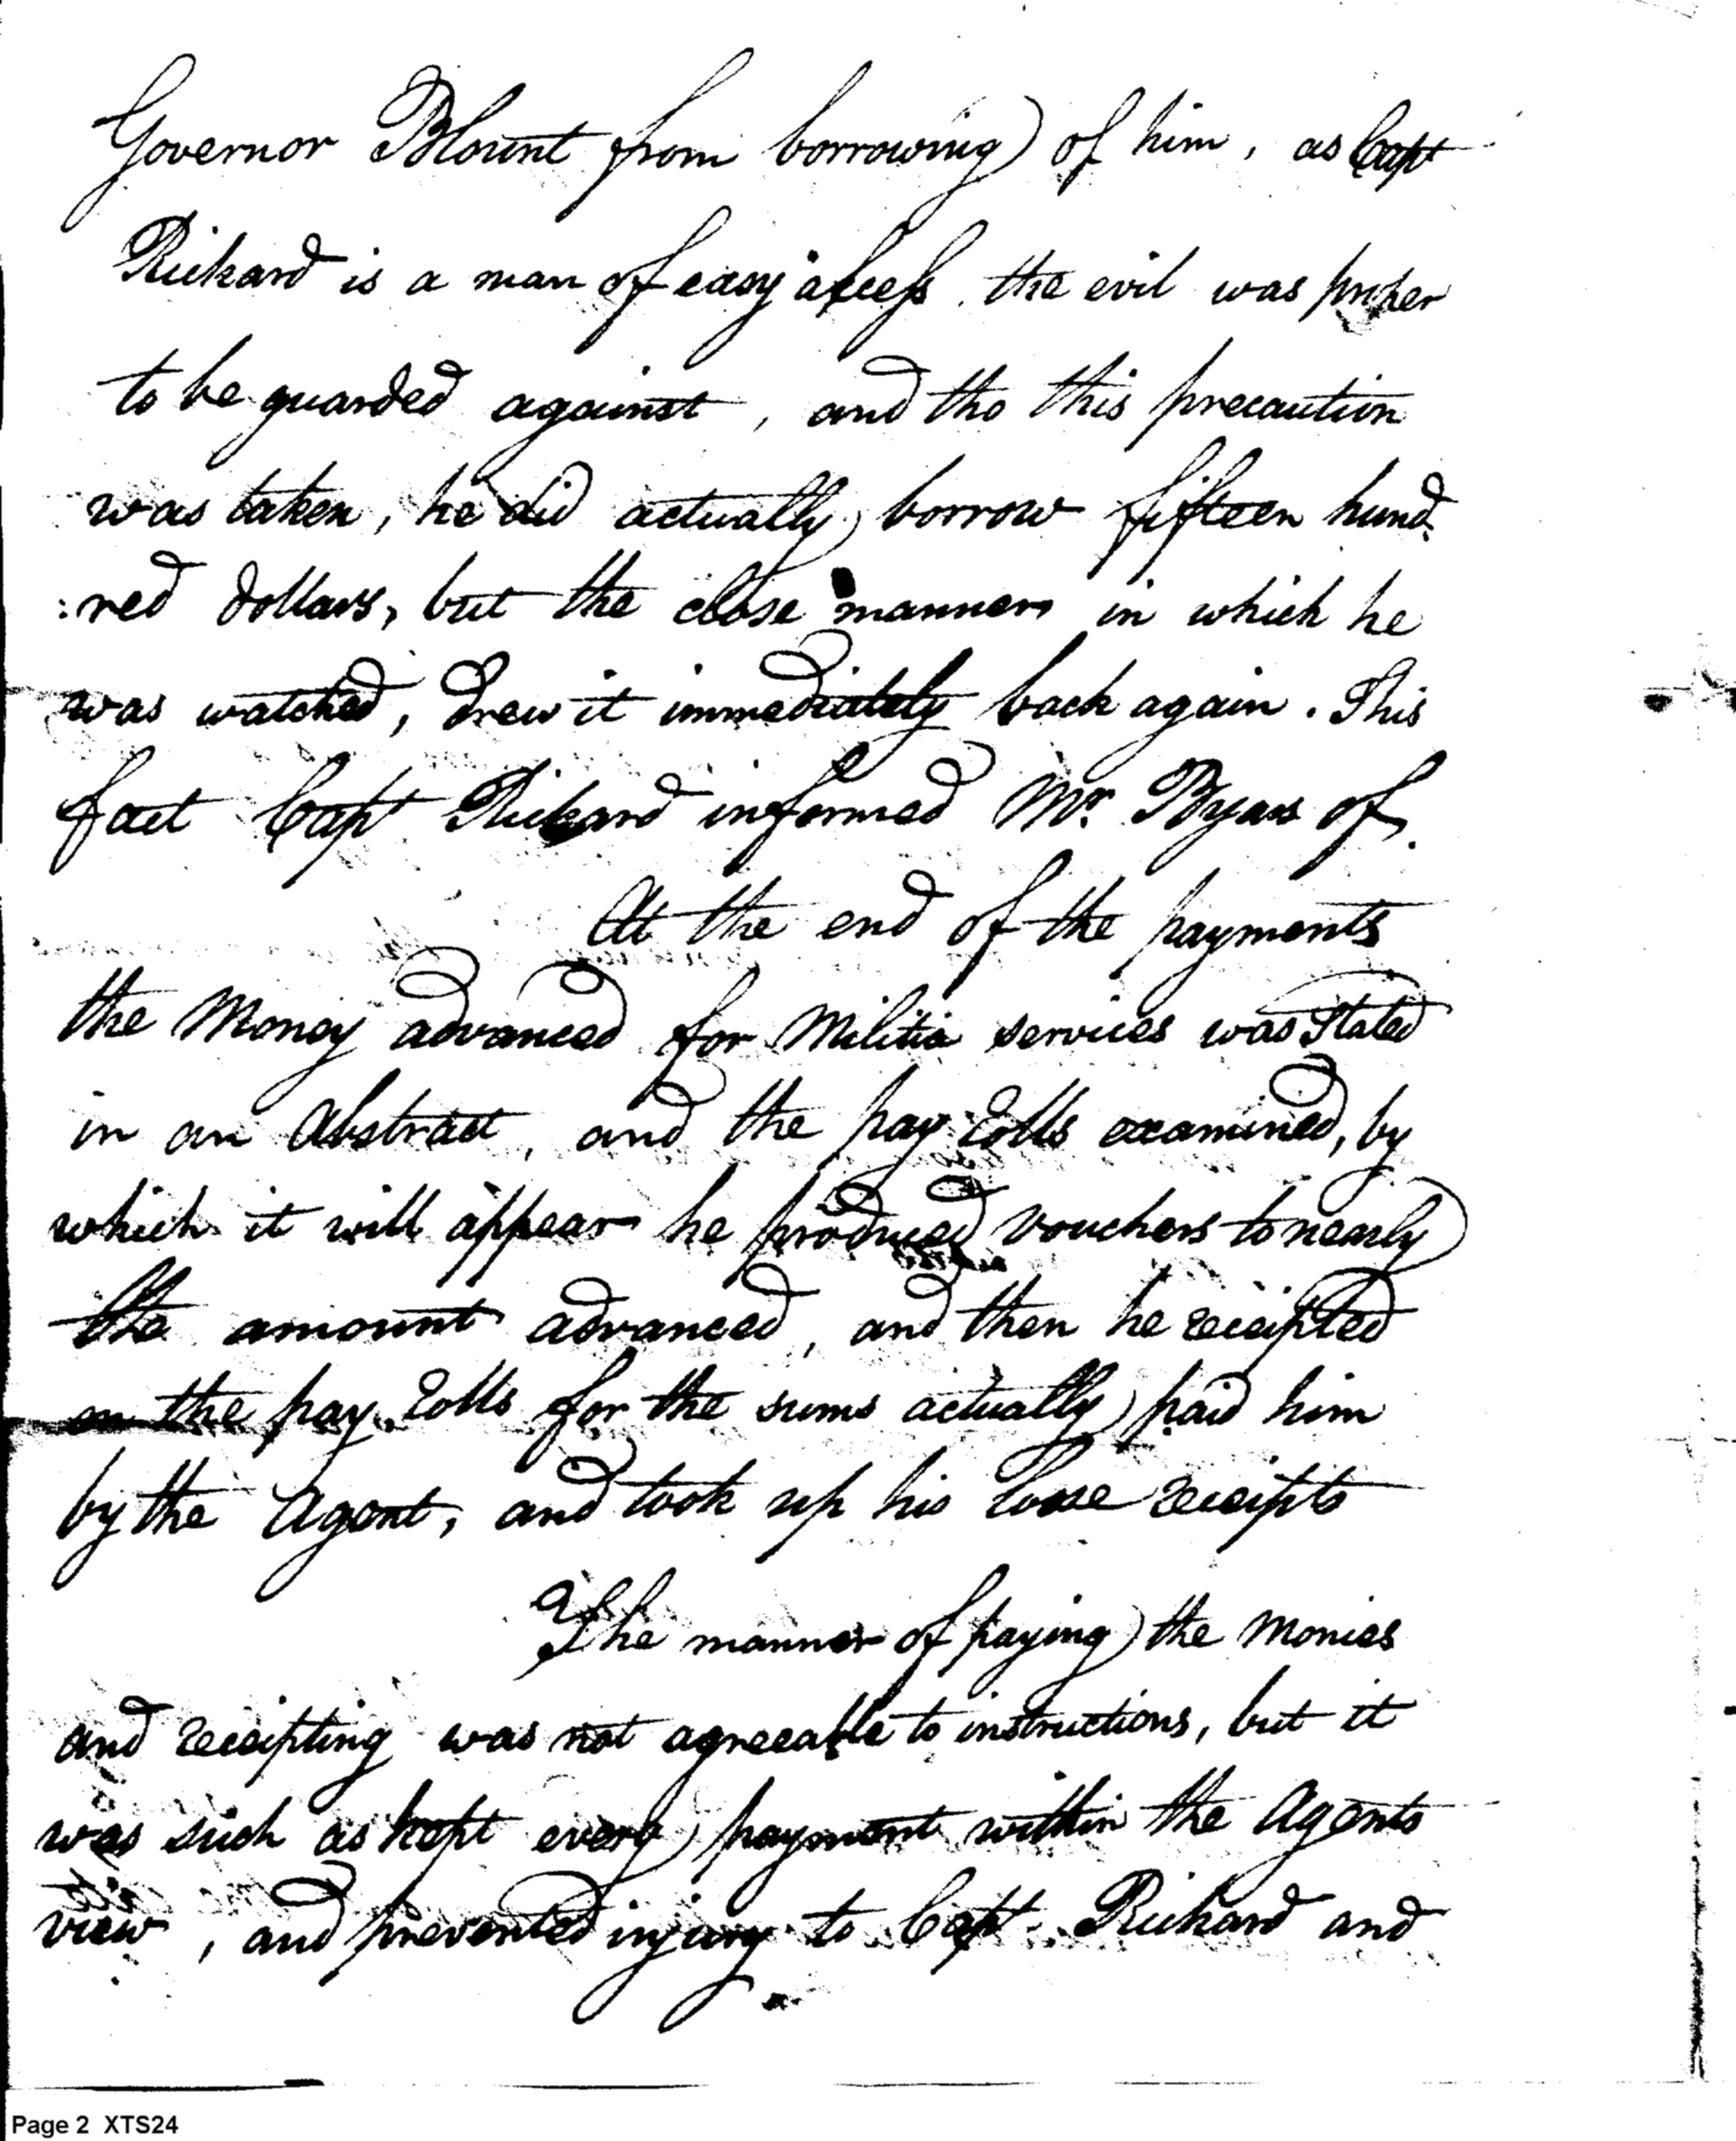 Governor Blount from borrowing of him, as Capt
Rickard is a man of easy access the evil was proper
to be guarded against, and tho this precaution
was taken, he did actually borrow fifteen hund
:red dollars, but the close manner in which he
was watched, drew it immediately back again. This
fact Capt Rickard informed Mr. Byers of.
At the end of the payments
the Money advanced for Militia services was Stated
in an Abstract, and the pay rolls examined, by
which it will appear he produced vouchers to nearly
the amount advanced, and then he receipted
on the pay rolls for the sums actually paid him
by the Agent, and took up his loose receipts
The manner of paying the Monies
and receipting was not agreeable to instructions, but it
was such as kept every payment within the Agents
view, and prevented injury to Capt. Rickard and
Page 2 XTS24